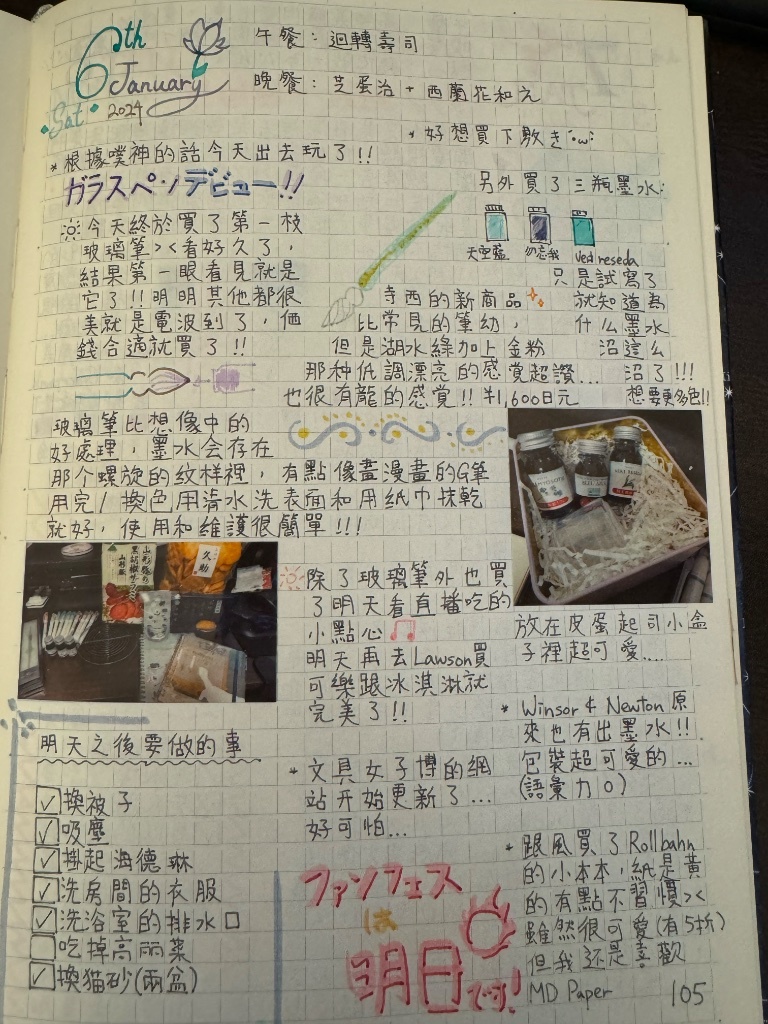 6th
January
Sat
2024
午餐：迴轉壽司
晚餐：芝蛋治+西蘭花和
*好想買下敷き
*根據噗神的話今天出去玩了!!
ガラスペンデビュー!!
今天終於買了第一枝
玻璃筆><看好久了，
結果第一眼看見就是
它了!!明明其他都很
美就是電波到了，価
錢合適就買了!!
另外買了三瓶墨水:
天空藍
勿忘我
Vert reseda
只是試寫了
就知道為
什么墨水
沼這么
沼了!!!
想要更多色!!
寺西的新商品
比常見的筆幼，
但是湖水綠加上金粉
那种低調漂亮的感覚超讚...
也很有龍的感覺!!¥1,600日元
玻璃筆比想像中的
好處理，墨水会存在
那个螺旋的紋样裡，有點像畫漫畫的G筆
用完/換色用清水洗表面和用紙巾抹乾
就好，使用和維護很簡單!!!
久助
除了玻璃筆外也買
了明天看直播吃的
小點心
明天再去Lawson買
可樂跟冰淇淋就
完美了!!
放在皮蛋起司小盒
子裡超可愛....
*Winsor & Newton原
來也有出墨水!!
包裝超可愛的...
(語彙力0)
明天之後要做的事
換被子
吸塵
掛起海德琳
洗房間的衣服
洗浴室的排水口
吃掉高丽菜
換猫砂(兩盆)
*文具女子博的網
站开始更新了...
好可怕...
ファンフェス
は
明日です!
*跟風買了Rollbahn
的小本本，紙是黃
的有點不習慣><
雖然很可愛(有5折)
但我还是喜歡
MD Paper
105